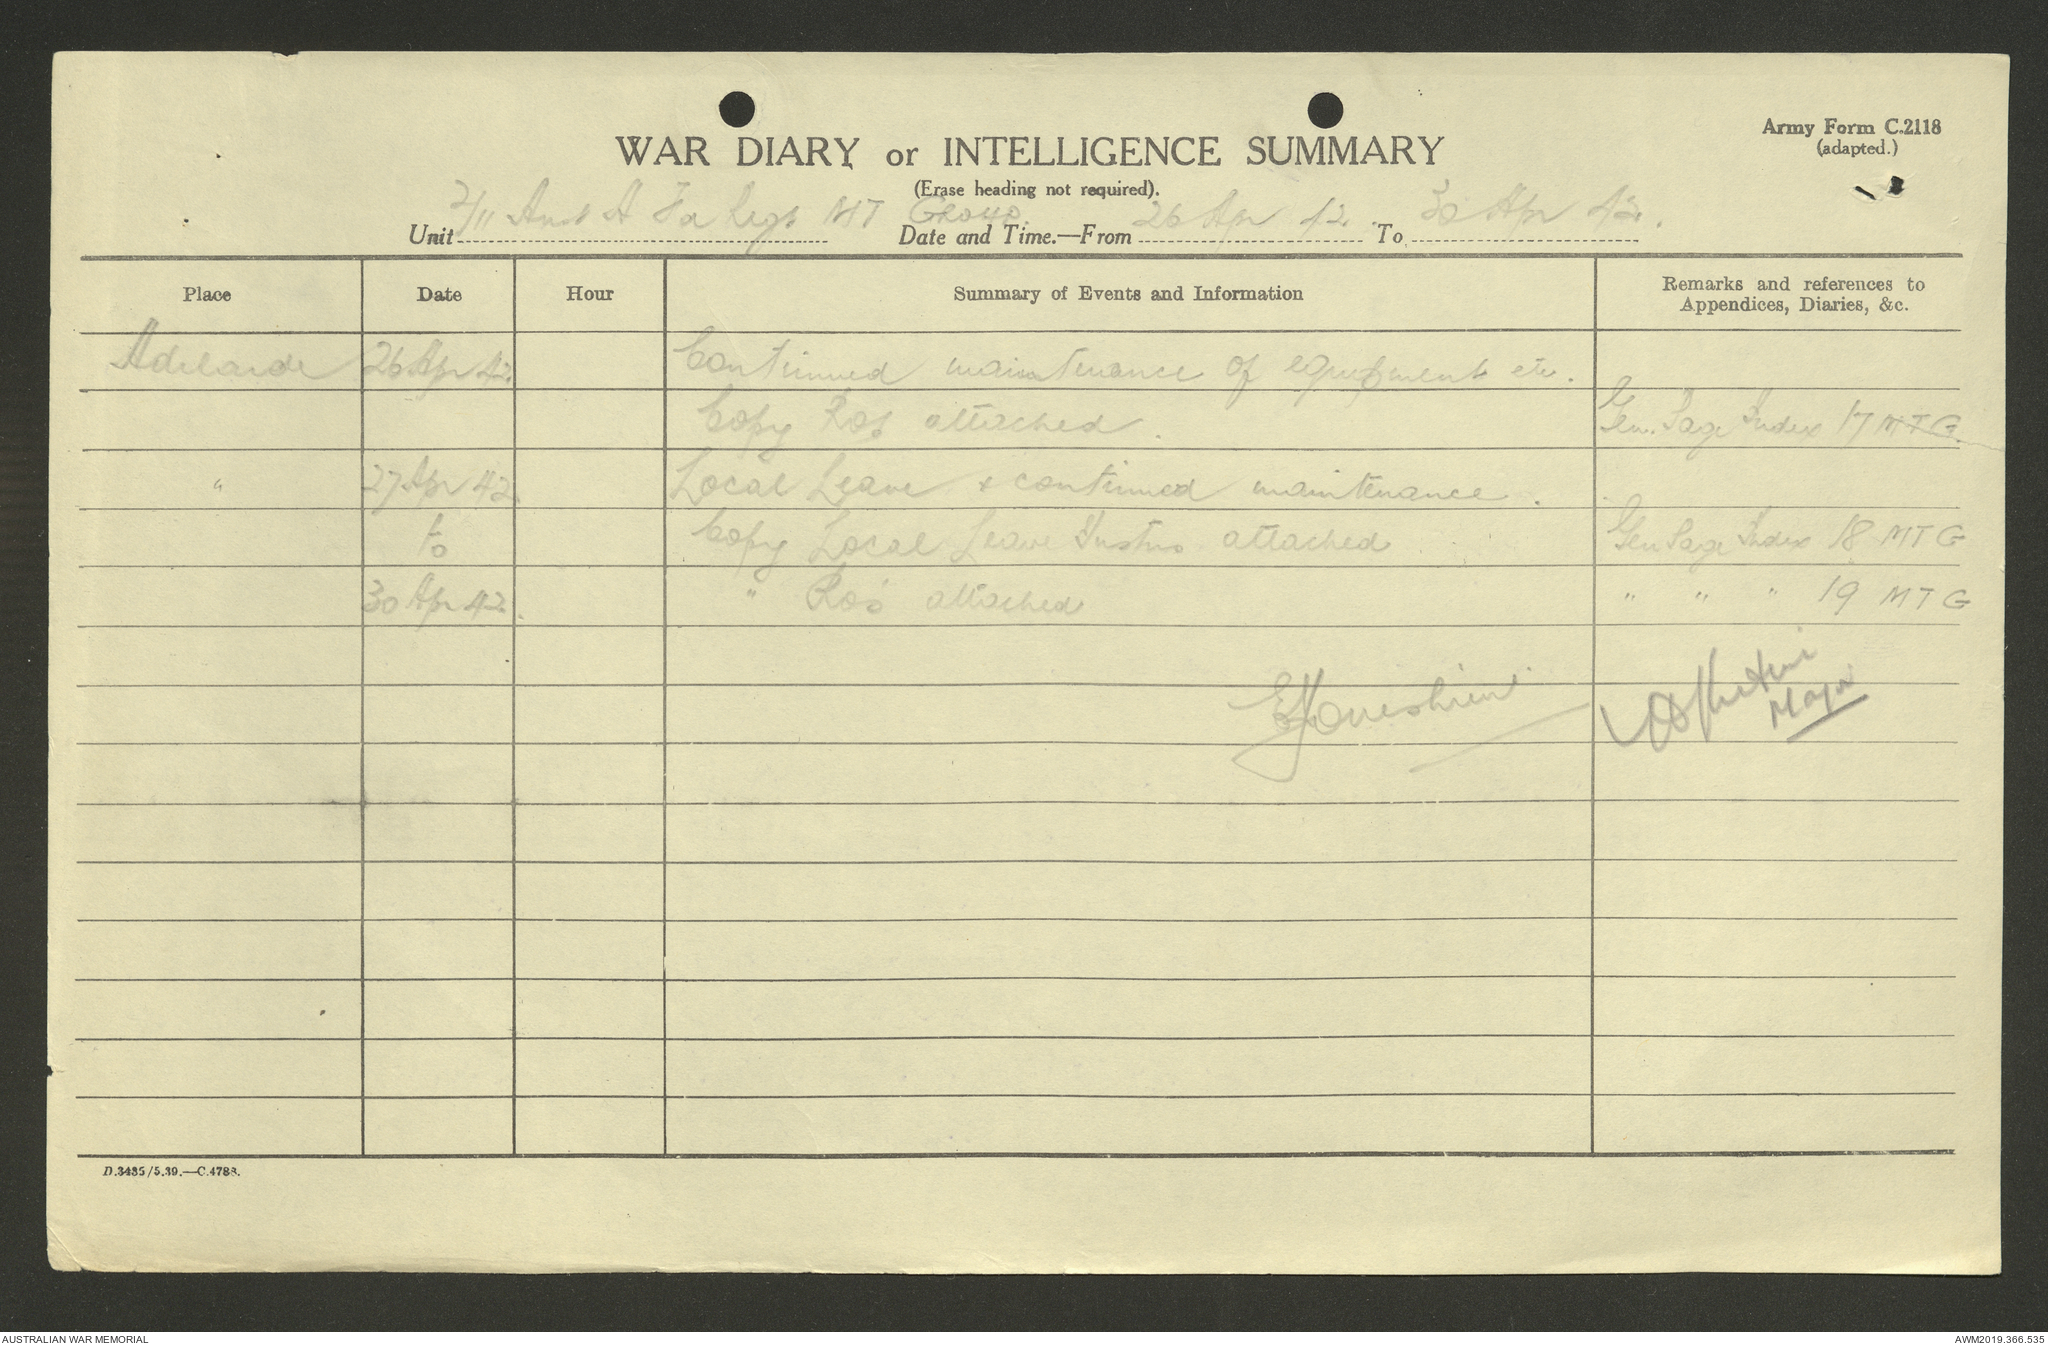 Army Form C.2118
(adapted.)
WAR DIARY or INTELLIGENCE SUMMARY
(Erase heading not required).
Unit 2/11 Aust A Fd Regt MT Group. Date and Time.—From 26 Apr 42. To 30 Apr 42.
Place Date Hour Summary of Events and Information Remarks and references to
Appendices, Diaries, &c.
Adelaide 26 Apr 42 Continued maintenance of equipment etc.
Copy ROs attached. Gen. Page Index 17 MTG.
" 27 Apr 42. Local Leave & continued maintenance.
to Copy Local Leave Instns attached Gen Page Index 18 MTG
30 Apr 42. " ROs attached " " " 19 MTG
Major
D.3485/5.39.—C.4788.
AUSTRALIAN WAR MEMORIAL
AWM2019.366.535